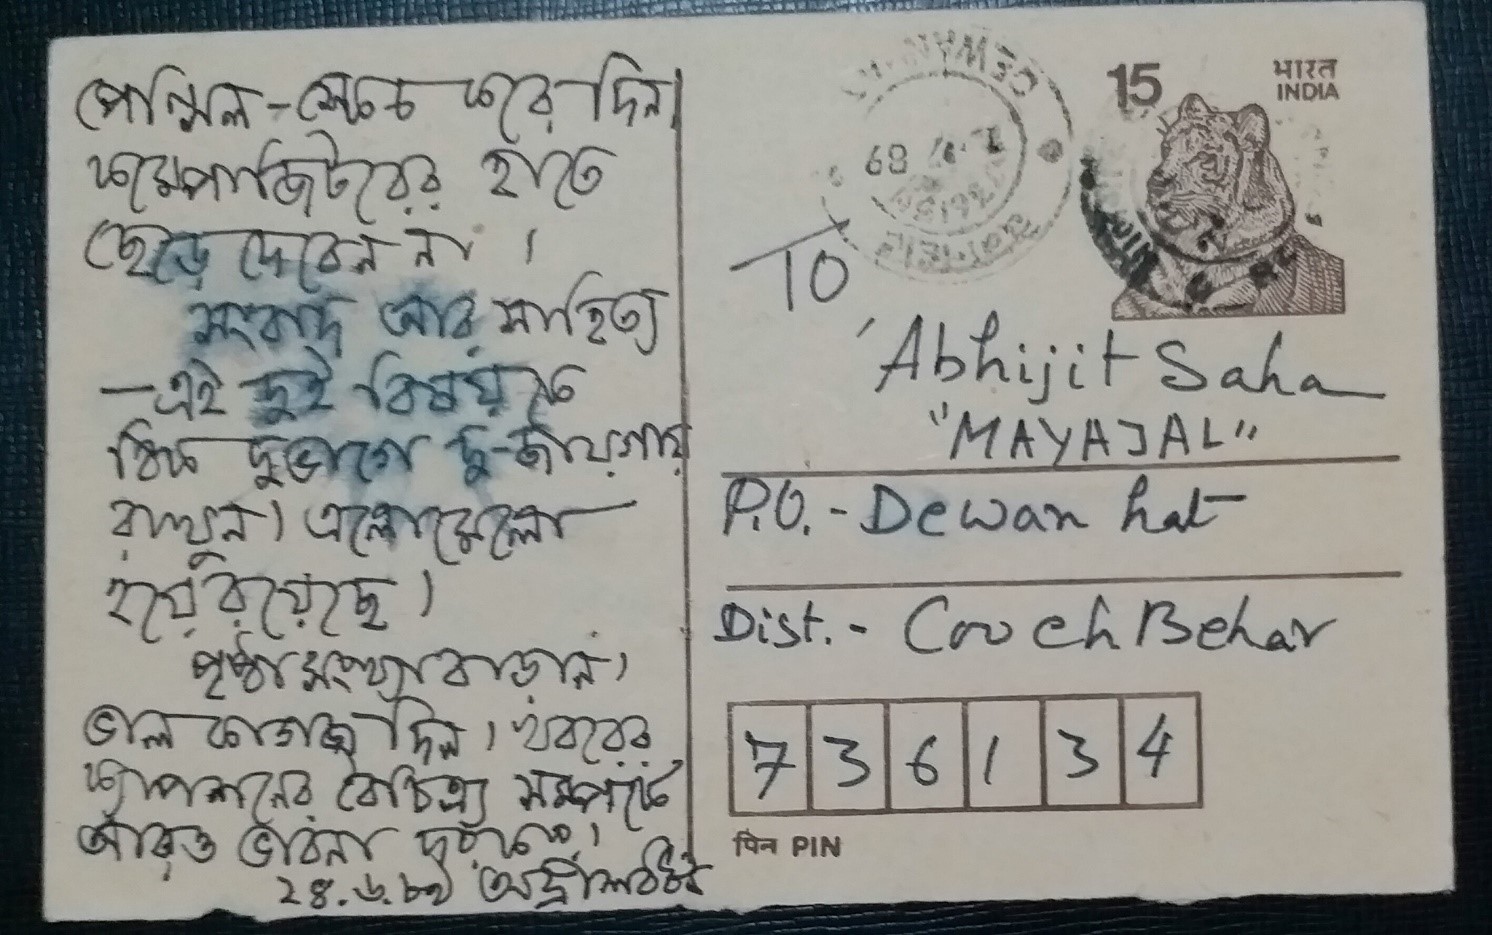 পেন্সিল-স্কেচ করে দিন।
কম্পোজিটরের হাতে
ছেড়ে দেবেন না।
সংবাদ আর সাহিত্য
—এই দুই বিষয়কে
ঠিক দুভাগে দু-জায়গায়
রাখুন। এলোমেলো
হয়ে রয়েছে।
পৃষ্ঠাসংখ্যা বাড়ান।
ভাল কাগজ দিন। খবরের
ক্যাপশনের বৈচিত্র্য সম্পর্কে
আরও ভাবনা দরকার।
২৪.৬.৮৯
15
भारत
INDIA
TO
Abhijit Saha
"MAYAJAL"
P.O. - Dewanhat
Dist. - Cooch Behar
7 3 6 1 3 4
पिन PIN